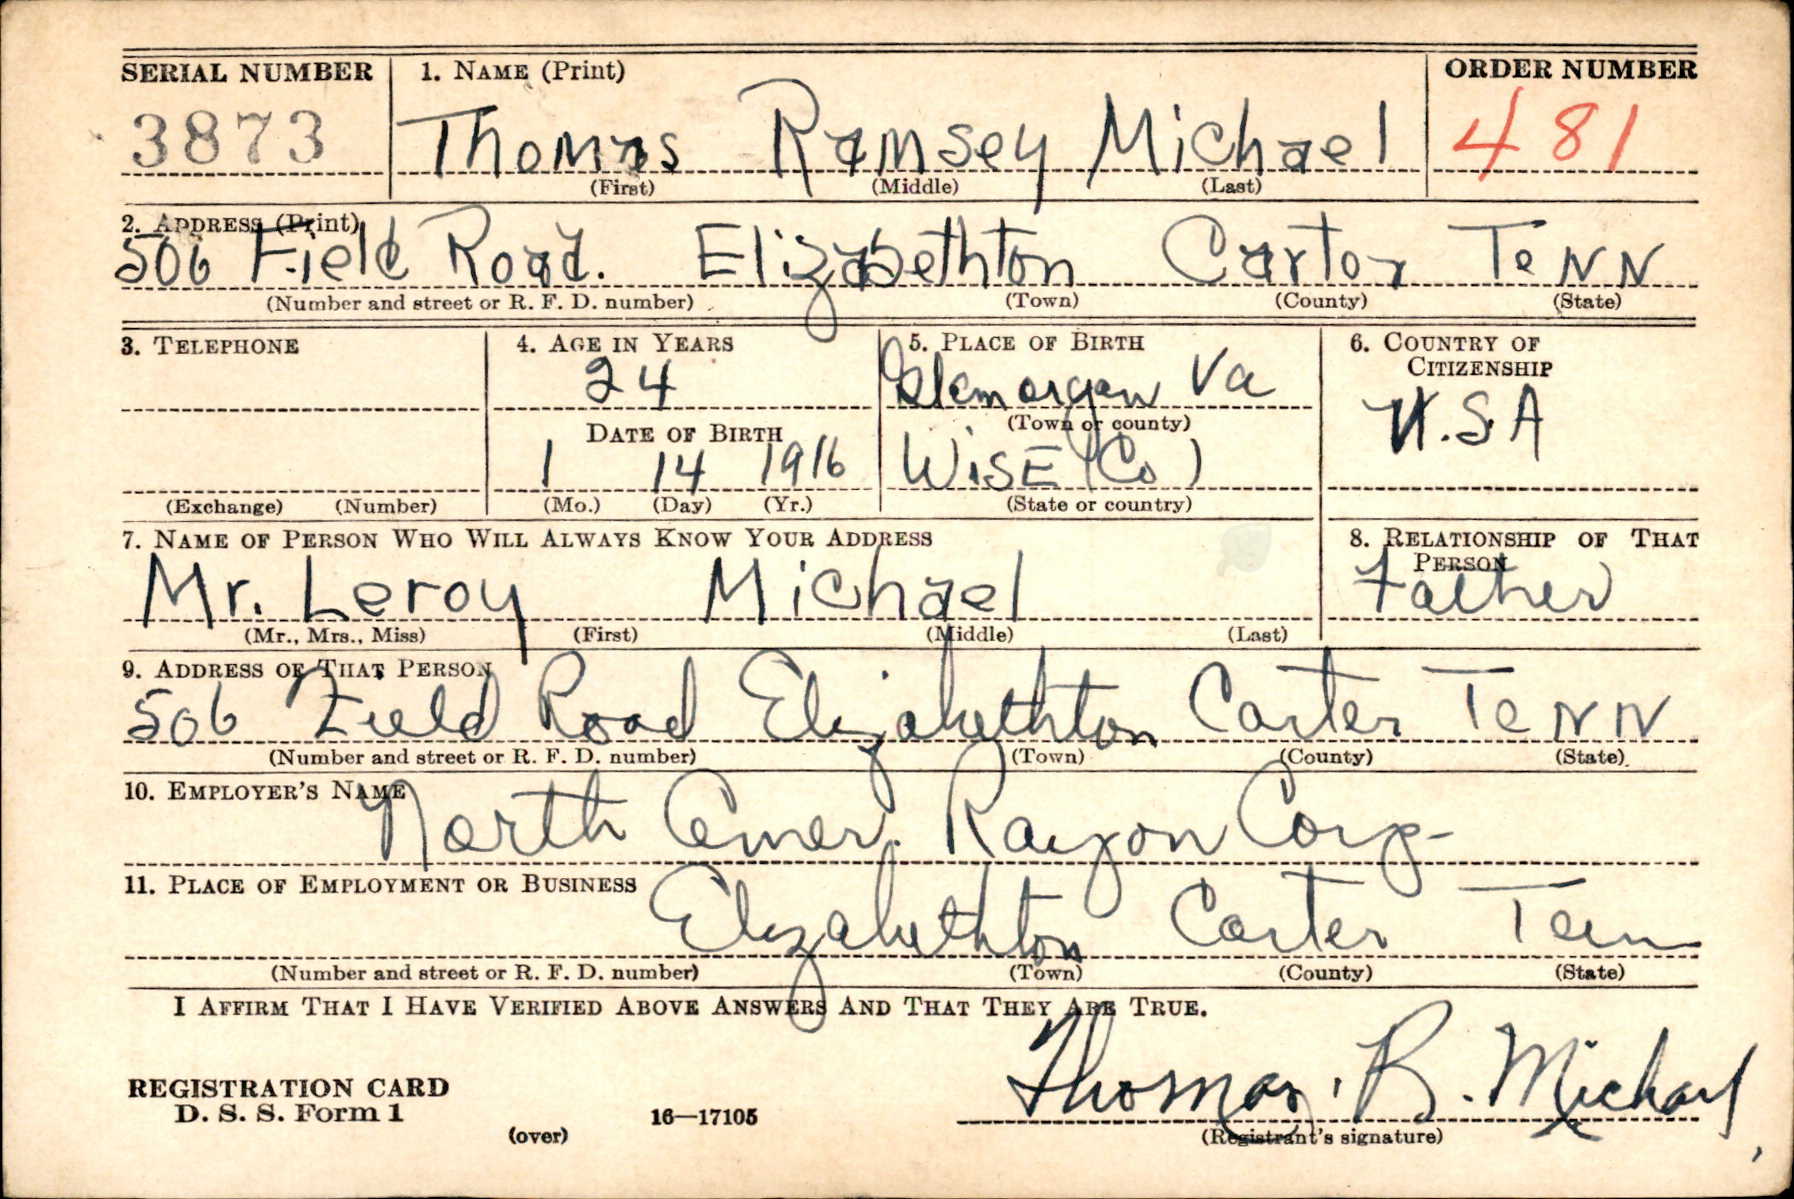 SERIAL NUMBER 1. NAME (Print) ORDER NUMBER
3873 Thomas Ramsey Michael 481
(First) (Middle) (Last)
2. ADDRESS (Print)
506 Field Road. Elizabethton Carter TeNN
(Number and street or R. F. D. number) (Town) (County) (State)
3. TELEPHONE 4. AGE IN YEARS 5. PLACE OF BIRTH 6. COUNTRY OF CITIZENSHIP
24 Glamorgan Va U.S.A
(Town or county)
DATE OF BIRTH
1 14 1916 WiSE (Co)
(Exchange) (Number) (Mo.) (Day) (Yr.) (State or country)
7. NAME OF PERSON WHO WILL ALWAYS KNOW YOUR ADDRESS 8. RELATIONSHIP OF THAT PERSON
Mr. Leroy Michael Father
(Mr., Mrs., Miss) (First) (Middle) (Last)
9. ADDRESS OF THAT PERSON
506 Field Road Elizabethton Carter TeNN
(Number and street or R. F. D. number) (Town) (County) (State)
10. EMPLOYER'S NAME
North Amer. Rayon Corp-
11. PLACE OF EMPLOYMENT OR BUSINESS
Elizabethton Carter Tenn
(Number and street or R. F. D. number) (Town) (County) (State)
I AFFIRM THAT I HAVE VERIFIED ABOVE ANSWERS AND THAT THEY ARE TRUE.
REGISTRATION CARD
D. S. S. Form 1 16—17105 Thomas. R. Michael
(over) (Registrant's signature)